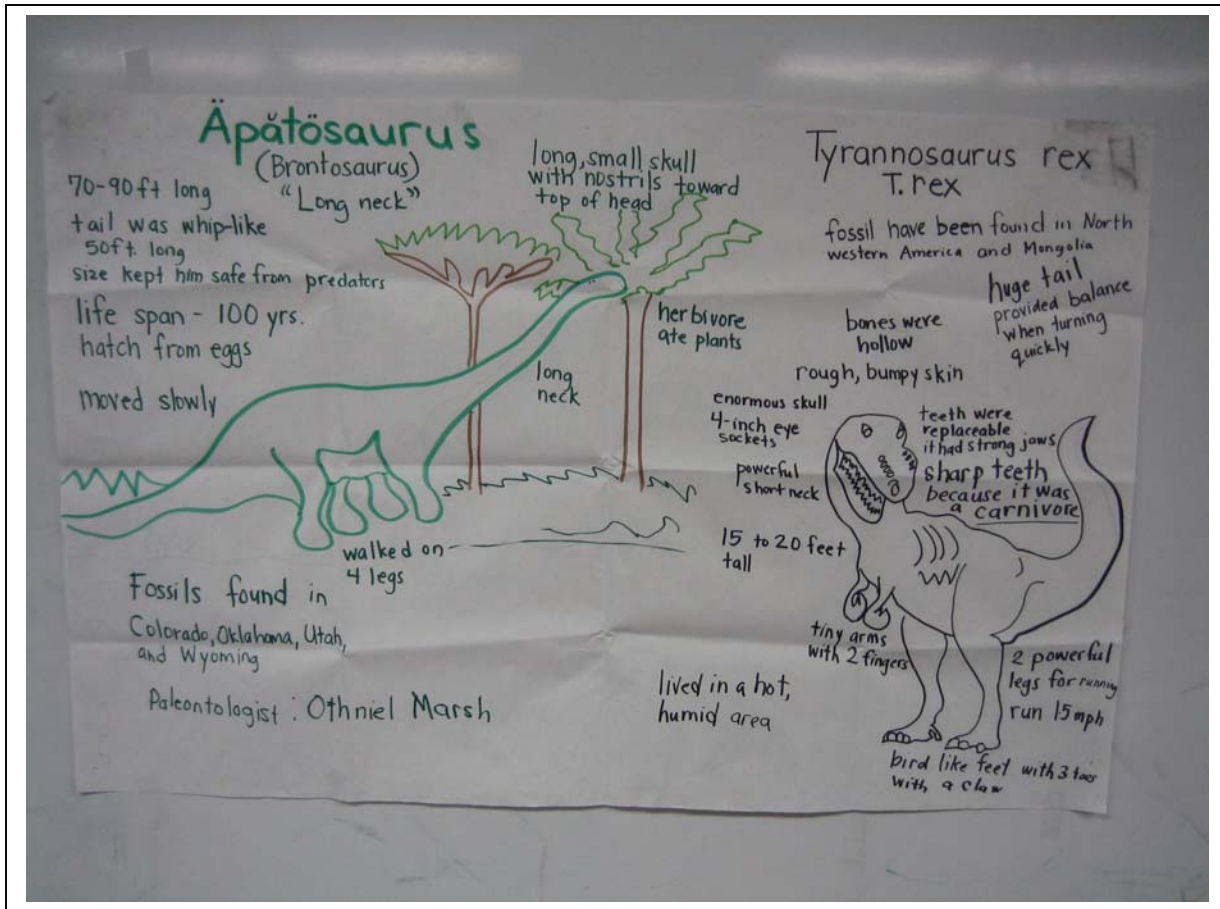 Äpătösaurus
(Brontosaurus)
"Long neck"
70-90ft long
tail was whip-like
50ft. long
size kept him safe from predators
life span - 100 yrs.
hatch from eggs
moved slowly
long, small skull
with nostrils toward
top of head
herbivore
ate plants
long
neck
walked on
4 legs
Fossils found in
Colorado, Oklahoma, Utah,
and Wyoming
Paleontologist: Othniel Marsh
Tyrannosaurus rex
T. rex
fossil have been found in North
western America and Mongolia
huge tail
provided balance
when turning
quickly
bones were
hollow
rough, bumpy skin
enormous skull
4-inch eye
sockets
teeth were
replaceable
it had strong jaws
sharp teeth
because it was
a carnivore
powerful
short neck
15 to 20 feet
tall
tiny arms
with 2 fingers
2 powerful
legs for running
run 15 mph
lived in a hot,
humid area
bird like feet with 3 toes
with a claw